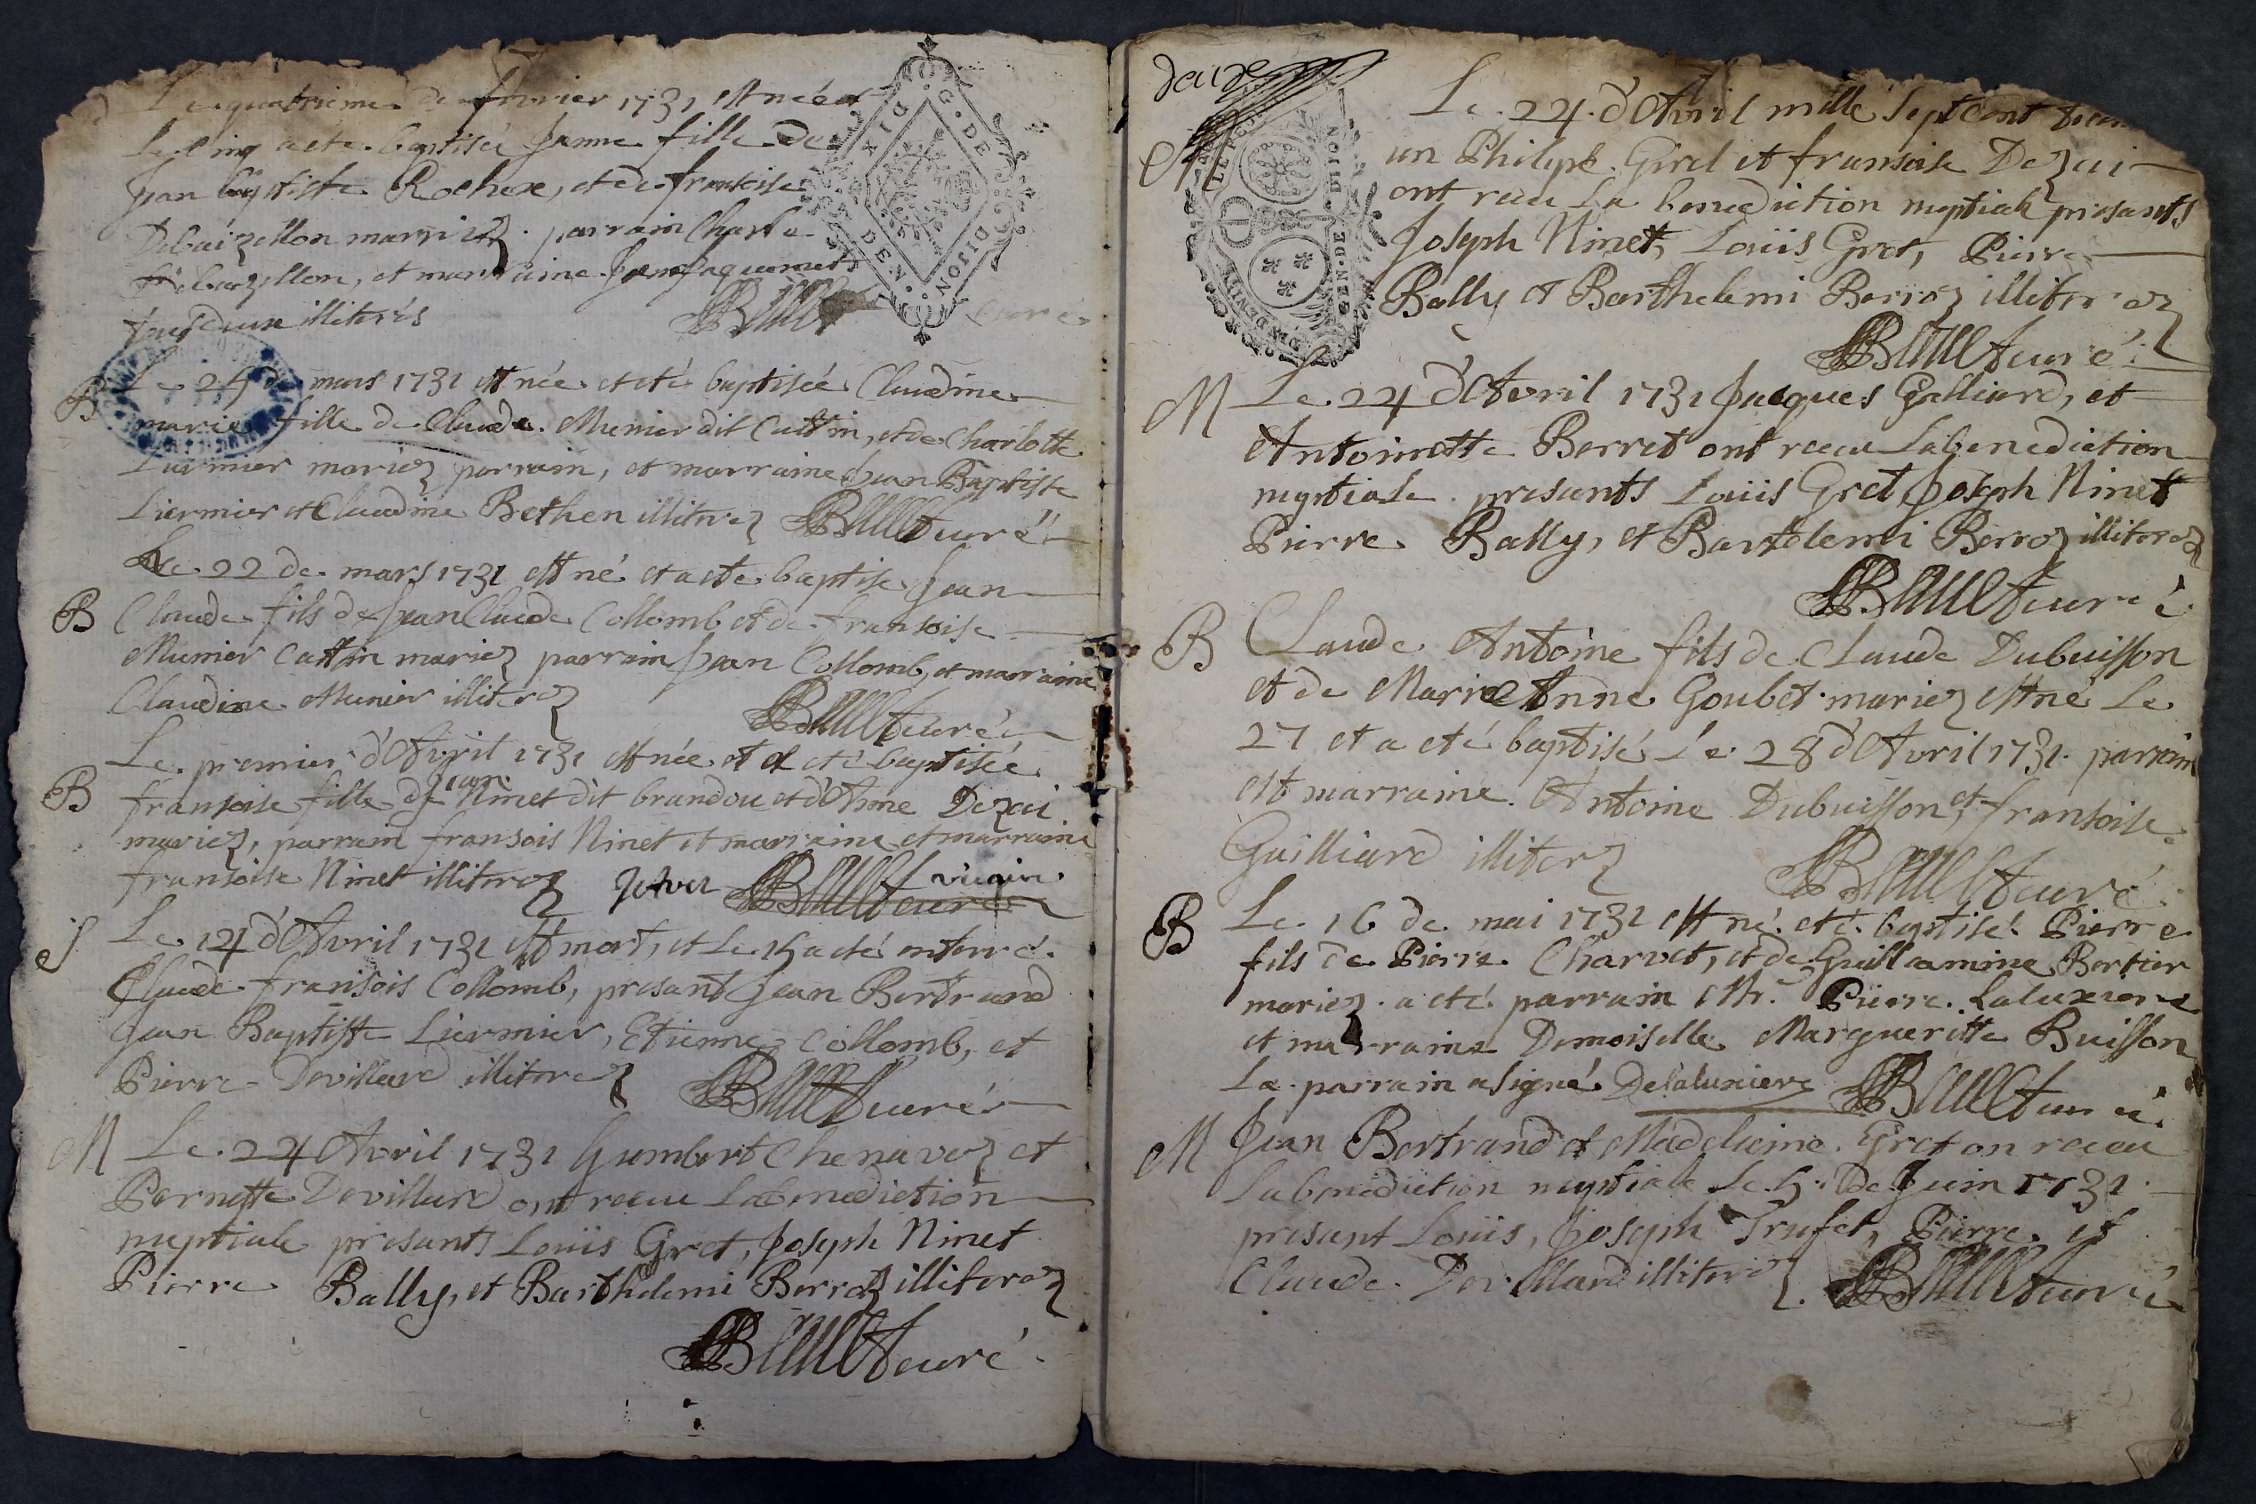 Le quatrieme de fevrier 1731 est née et
le cinq a eté baptisée Janne fille de
Jean baptiste Rochex, et de fransoise
Debaizellon mariez parrain Charle
Debaizellon, et marraine Jean Jaquemet
tous deux illiterés
B Le 25 de mars 1731 est née et eté baptisée Claudine
marie fille de Claude Munier dit Cattin, et de Charlotte
Liermier mariez parrain, et marraine Jean Baptiste
Liermier et Claudine Bethen illiterez curé
Le 22 de mars 1731 est né et a eté baptise Jean
B Claude fils de Jean Claude Collomb et de fransoise
Munier Cattin mariez parrain Jean Collomb, et marraine
Claudine Munier illiterez
curé
Le premier d'Avril 1731 est née et a eté baptisée
B fransoise fille de Jean Ninet dit brandou et d'Anne Dezai
mariez, parrain fransois Ninet et marraine et marraine
fransoise Ninet illiterez vicaire curé
S Le 14 d'Avril 1731 est mort, et le 15 a eté enterré
Claude fransois Collomb, presant Jean Bertrand
Jean Baptiste Liermier, Etienne Collomb, et
Pierre Devillard illiterez curé
M Le 24 Avril 1731 humbert Chenavez et
Pernette Devillard ont receu La benediction
nuptiale presants Louis Gret, Joseph Ninet
Pierre Bally, et Barthelemi Berroz illiterez
curé
G. DE DIJON
Le 24 d'Avril mille sept cent
M un Philipe Girel et fransoise Dezai
ont receu La benediction nuptiale presants
Joseph Ninet, Louis Gret, Pierre
Bally et Barthelemi Berroz illiterez
curé
M Le 24 d'Avril 1731 Jacques Galliard, et
Antoinette Berret ont receu La benediction
nuptiale presants Louis Gret Joseph Ninet
Pierre Bally, et Bartelemi Berroz illiterez
curé
B Claude Antoine fils de Claude Dubuisson
et de Marie Anne Goubet mariez est né Le
27 et a eté baptisé Le 28 d'Avril 1731 parrain
est marraine Antoine Dubuisson, et fransoise
Guilliard illiterez
curé
B Le 16 de mai 1731 est né eté baptisé Pierre
fils de Pierre Charvet, et de Guillamine Bertier
mariez a eté parrain Mr. Pierre Laluxiere
et marraine Demoiselle Margueritte Buisson
Le parrain a signé Delaluxiere curé
M Jean Bertrand et Madeleine Gret on receu
La benediction nuptiale Le 5 de Juin 1731
presant Louis, Joseph Trufet, Pierre et
Claude Devillard illiterez curé